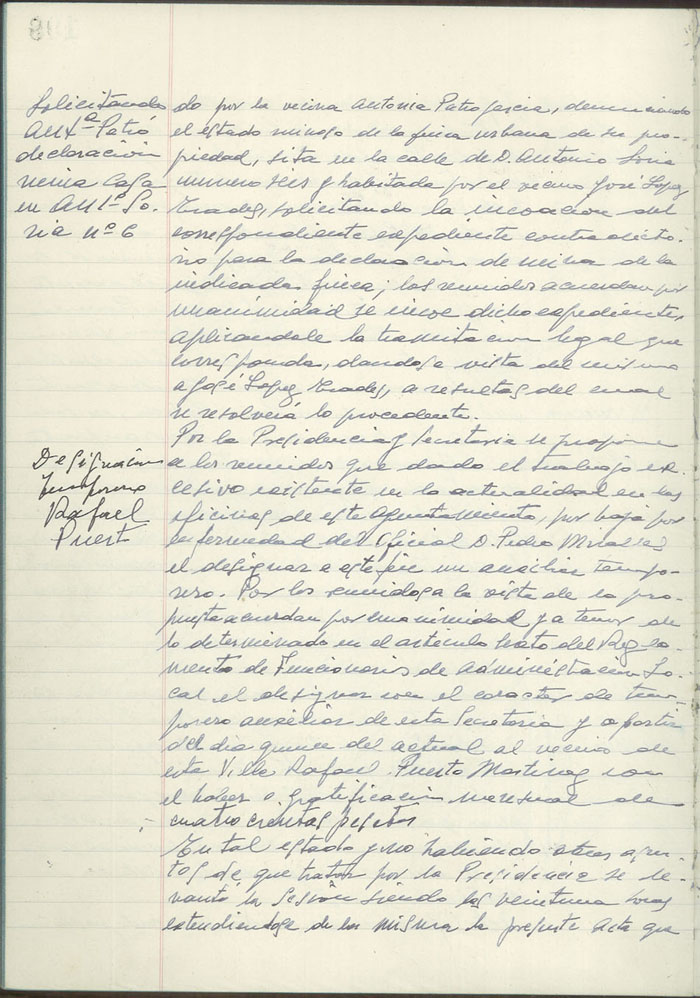 Solicitando
Antª Patró
declaración
ruina casa
en Antº So-
ria nº 6
do por la vecina Antonia Patro Garcia, denunciando
el estado ruinoso de la finca urbana de su pro-
piedad, sita en la calle de D. Antonio Soria
numero seis y habitada por el vecino José Lopez
Trades, solicitando la incoacion del
correspondiente expediente contradicto-
rio para la declaracion de ruina de la
indicada finca; los reunidos acuerdan por
unanimidad se incoe dicho expediente,
aplicandole la tramitacion legal que
corresponda, dandose vista del mismo
a José Lopez Trades, a resultas del cual
se resolverá lo procedente.
Designación
Temporero
Rafael
Puerto
Por la Presidencia y Secretaria se propone
a los reunidos que dado el trabajo ex-
cesivo existente en la actualidad en las
oficinas de este Ayuntamiento, por baja por
enfermedad del Oficial D. Pedro Miralles
el designar a este fin un auxiliar tempo-
rero. Por los reunidos a la vista de la pro-
puesta acuerdan por unanimidad y a tenor de
lo determinado en el articulo sexto del Regla-
mento de Funcionarios de Administracion Lo-
cal el designar con el caracter de tem-
porero auxiliar de esta Secretaria y a partir
del dia quince del actual al vecino de
esta Villa Rafael Puerto Martinez con
el haber o gratificacion mensual de
cuatrocientas pesetas
En tal estado y no habiendo otros asun-
tos de que tratar por la Presidencia se le-
vantó la Sesión siendo las veintiuna horas
extendiendose de la misma la presente acta que